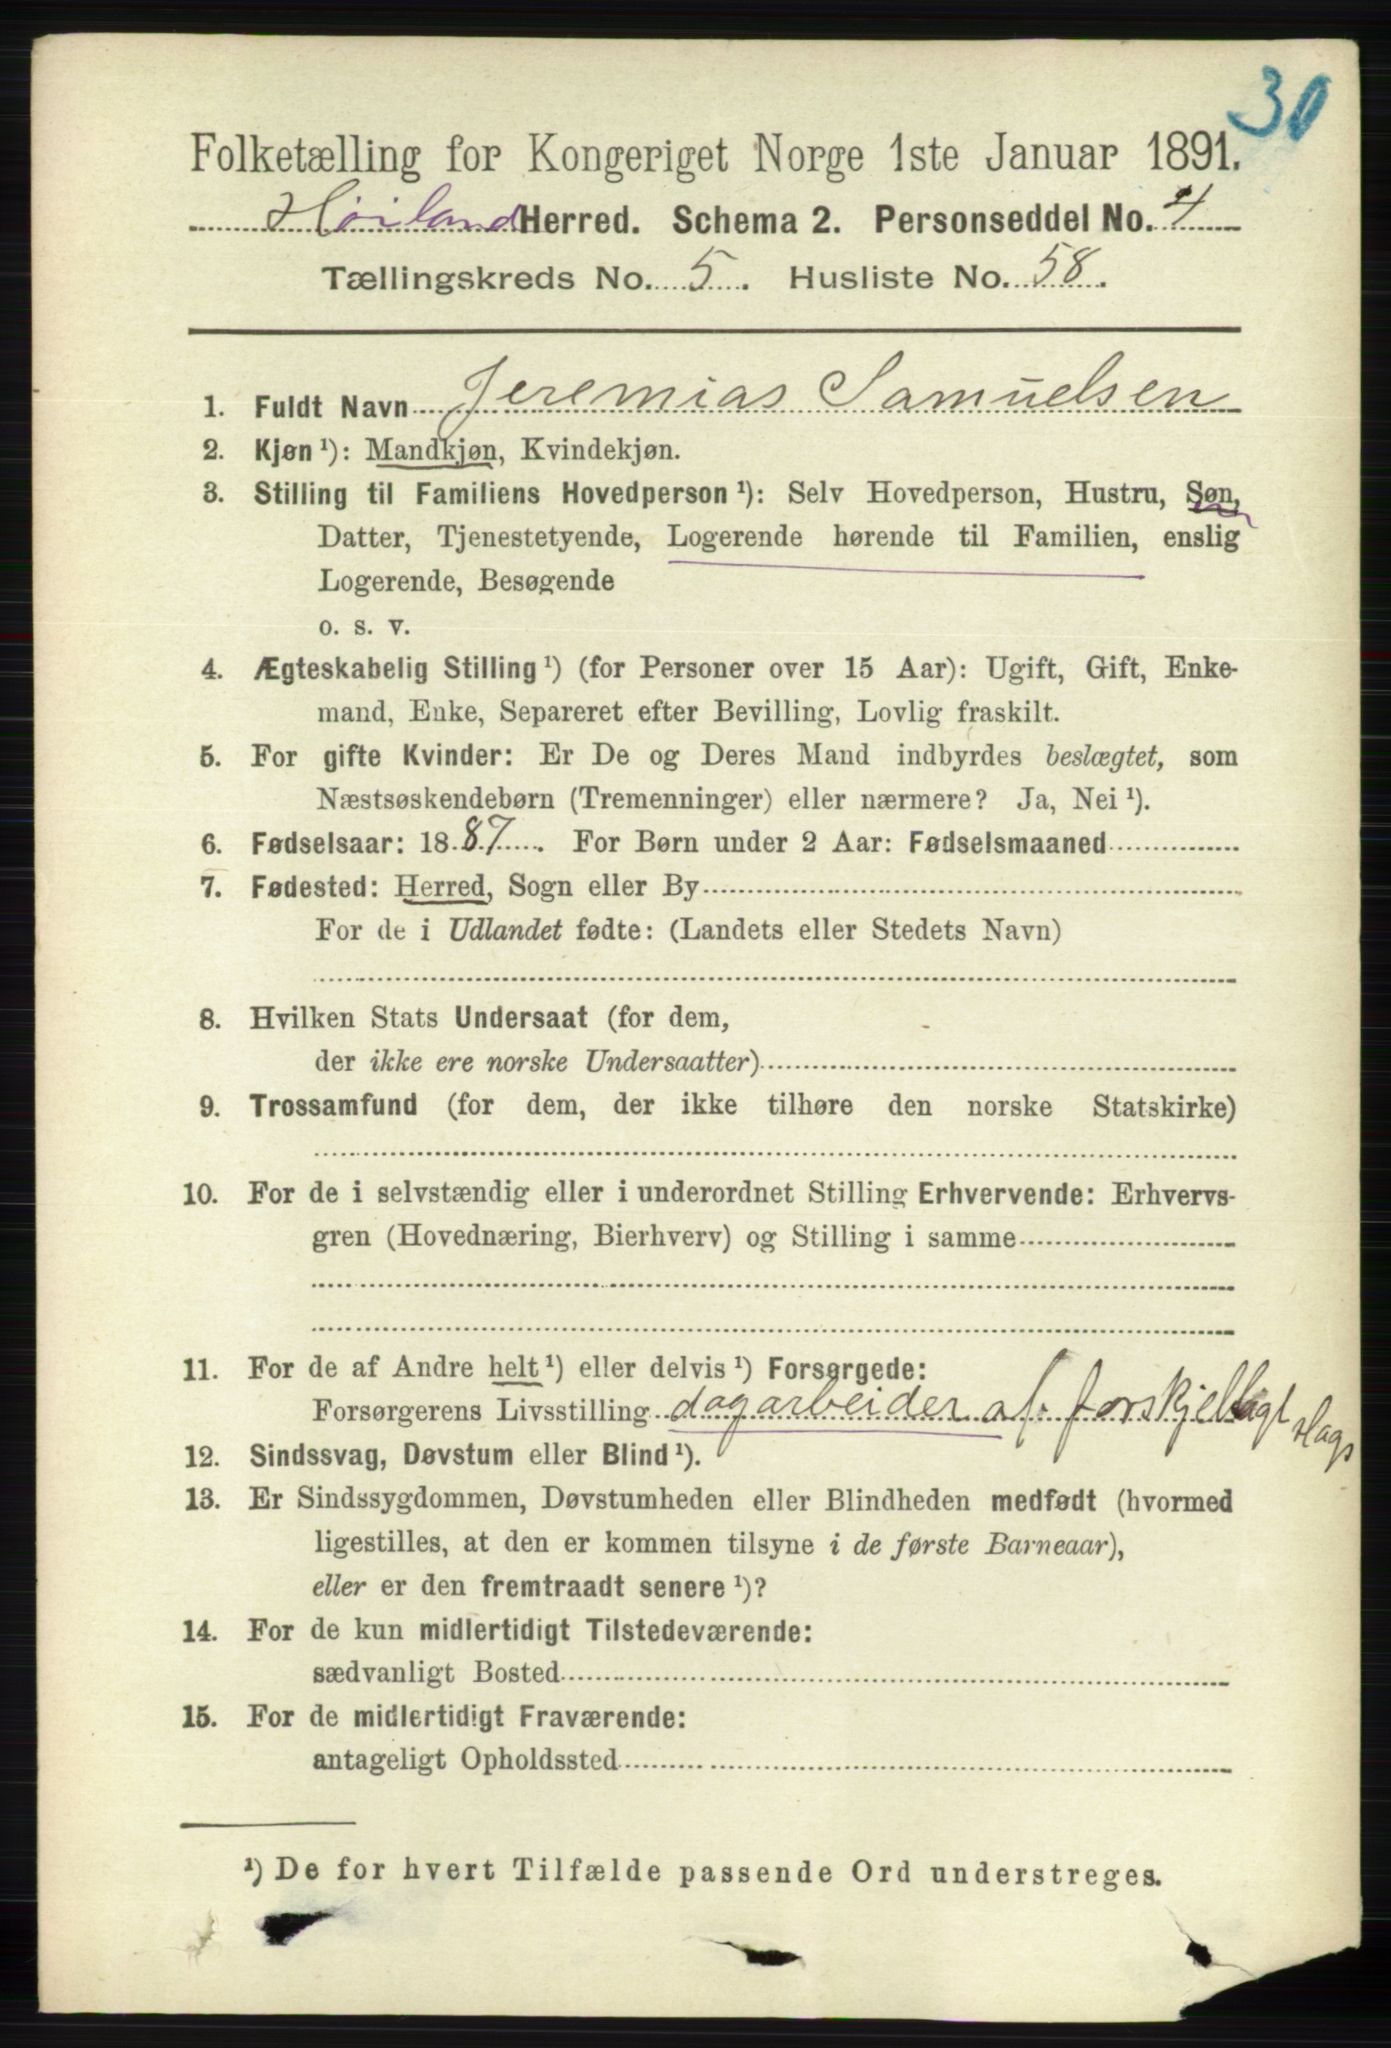 30
Folketælling for Kongeriget Norge 1ste Januar 1891.
Høiland Herred. Schema 2. Personseddel No. 4
Tællingskreds No. 5. Husliste No. 58.
1. Fuldt Navn Jeremias Samuelsen
2. Kjøn ¹): Mandkjøn, Kvindekjøn.
3. Stilling til Familiens Hovedperson ¹): Selv Hovedperson, Hustru, Søn,
Datter, Tjenestetyende, Logerende hørende til Familien, enslig
Logerende, Besøgende
o. s. v.
4. Ægteskabelig Stilling ¹) (for Personer over 15 Aar): Ugift, Gift, Enke-
mand, Enke, Separeret efter Bevilling, Lovlig fraskilt.
5. For gifte Kvinder: Er De og Deres Mand indbyrdes beslægtet, som
Næstsøskendebørn (Tremenninger) eller nærmere? Ja, Nei ¹).
6. Fødselsaar: 1887. For Børn under 2 Aar: Fødselsmaaned
7. Fødested: Herred, Sogn eller By
For de i Udlandet fødte: (Landets eller Stedets Navn)
8. Hvilken Stats Undersaat (for dem,
der ikke ere norske Undersaatter)
9. Trossamfund (for dem, der ikke tilhøre den norske Statskirke)
10. For de i selvstændig eller i underordnet Stilling Erhvervende: Erhvervs-
gren (Hovednæring, Bierhverv) og Stilling i samme
11. For de af Andre helt ¹) eller delvis ¹) Forsørgede:
Forsørgerens Livsstilling dagarbeider af forskjelligt slags
12. Sindssvag, Døvstum eller Blind ¹).
13. Er Sindssygdommen, Døvstumheden eller Blindheden medfødt (hvormed
ligestilles, at den er kommen tilsyne i de første Barneaar),
eller er den fremtraadt senere ¹)?
14. For de kun midlertidigt Tilstedeværende:
sædvanligt Bosted
15. For de midlertidigt Fraværende:
antageligt Opholdssted
¹) De for hvert Tilfælde passende Ord understreges.